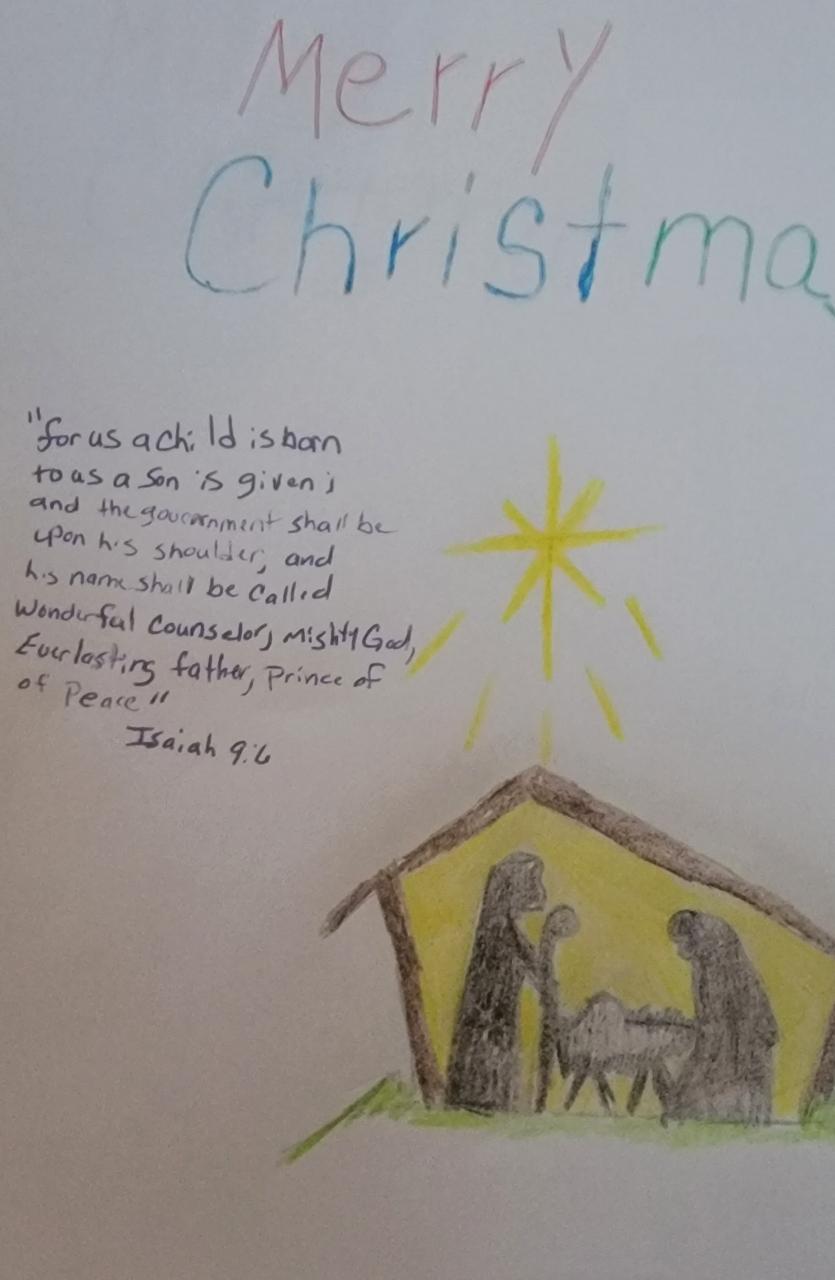 Merry
Christma
"for us a child is born
to us a son is given;
and the goucernment shall be
upon his shoulder; and
his name shall be called
Wonderful Counselor, Mighty God,
Everlasting father, Prince of
of Peace"
Isaiah 9:6